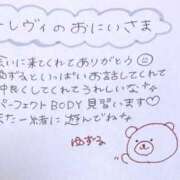 レヴィのおにいさま
会いに来てくれてありがとう
ゆずるといっぱいお話してくれて
仲良くしてくれてうれしいな
パーフェクトBODY見習います♡
また一緒に遊んでね
ゆずる